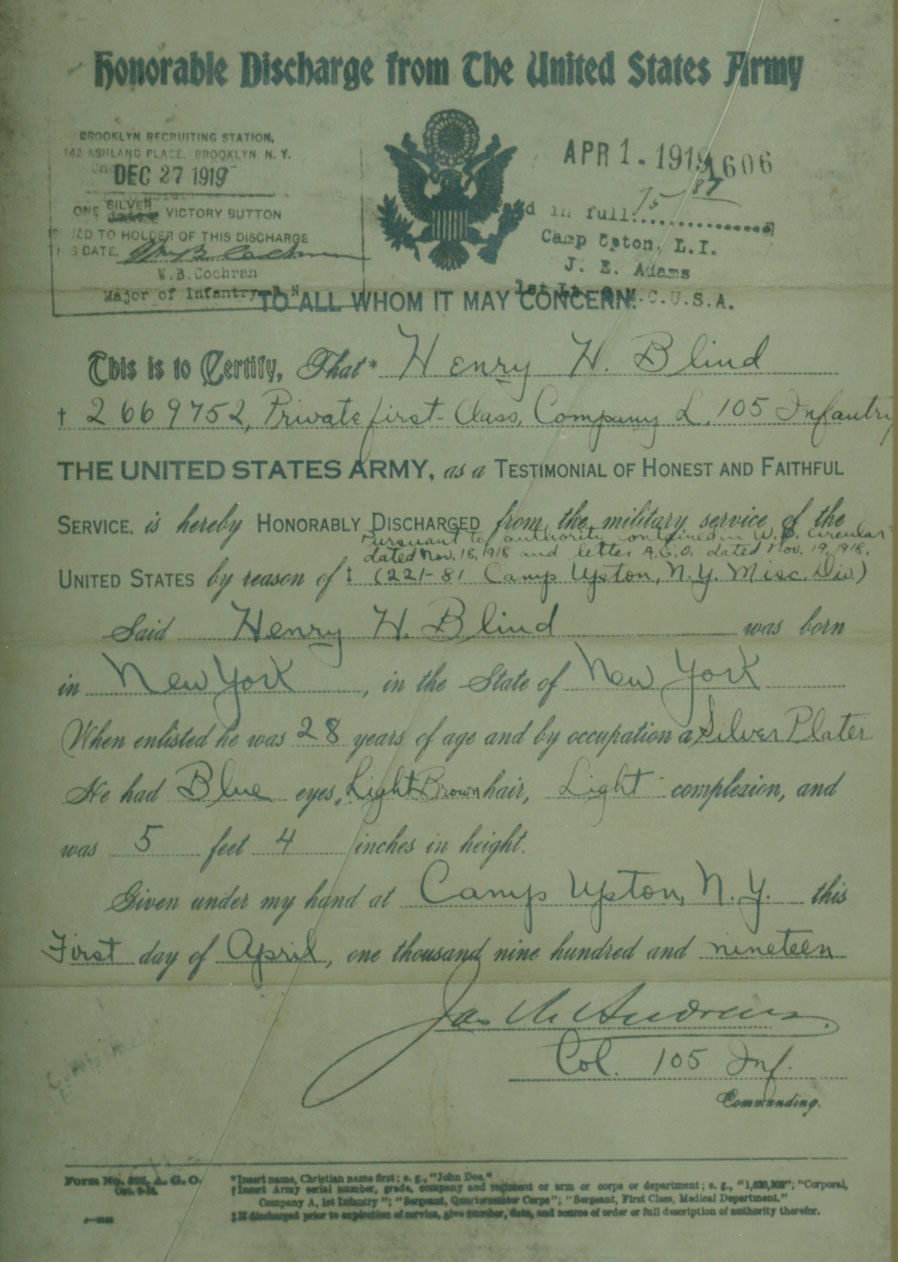 Honorable Discharge from The United States Army
BROOKLYN RECRUITING STATION,
142 ASHLAND PLACE, BROOKLYN, N. Y.
DEC 27 1919
ONE SILVER VICTORY BUTTON
ISSUED TO HOLDER OF THIS DISCHARGE
THIS DATE.
W.B.Cochran
Major of Infantry
APR 1. 1919
1606
75 87
d in full:
Camp Upton, L.I.
J. E. Adams
1st Lt. Q.M.C.U.S.A.
TO ALL WHOM IT MAY CONCERN:
This is to Certify, That* Henry H. Blind
† 2669752, Private first-Class, Company L, 105 Infantry
THE UNITED STATES ARMY, as a TESTIMONIAL OF HONEST AND FAITHFUL
SERVICE, is hereby HONORABLY DISCHARGED from the military service of the
Pursuant to authority contained in W.D. Circular
dated Nov. 18, 1918 and letter A.G.O. dated Nov. 19, 1918.
UNITED STATES by reason of‡ (221-81 Camp Upton, N.Y. Misc. Div.)
Said Henry H. Blind was born
in New York, in the State of New York
When enlisted he was 28 years of age and by occupation a Silver Plater
He had Blue eyes, Light Brown hair, Light complexion, and
was 5 feet 4 inches in height.
Given under my hand at Camp Upton, N.Y. this
First day of April, one thousand nine hundred and nineteen
Jas M Andrews
Col. 105 Inf.
Commanding.
Form No. 525, A. G. O.
Oct. 9-18.
*Insert name, Christian name first; e. g., "John Doe."
†Insert Army serial number, grade, company and regiment or arm or corps or department; e. g., "1,620,302"; "Corporal,
Company A, 1st Infantry"; "Sergeant, Quartermaster Corps"; "Sergeant, First Class, Medical Department."
‡If discharged prior to expiration of service, give number, date, and source of order or full description of authority therefor.